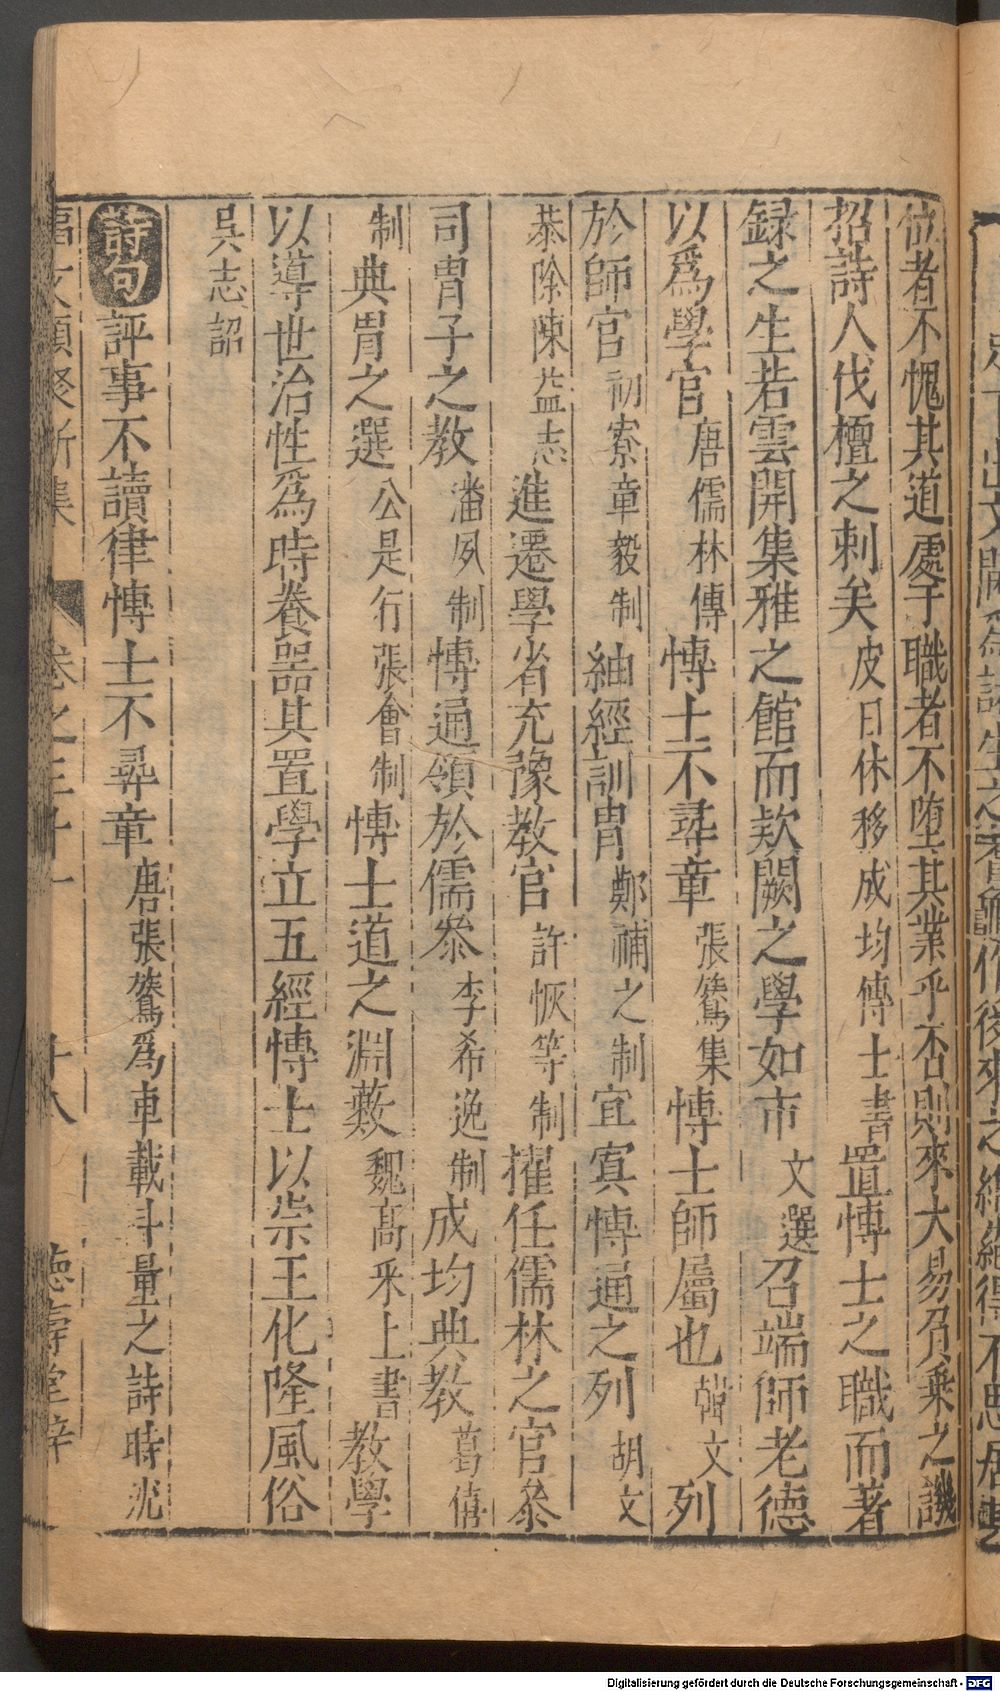 位者不愧其道處于職者不墮其業乎否則來大易負乗之譏
招詩人伐檀之刺矣皮日休移成均博士書置博士之職而著
録之生若雲開集雅之館而欵闕之學如市文選召端師老德
以爲學官唐儒林傳博士不尋章張鷟集博士師屬也韓文列
於師官初寮章毅制紬經訓胄鄭補之制宜寘博通之列胡文
恭除陳益志進遷學省充豫教官許恢等制擢任儒林之官叅
司胄子之教潘夙制博通領於儒叅李希逸制成均典教葛僖
制典胄之選公是行張會制博士道之淵藪魏高釆上書教學
以導世治性爲時養噐其置學立五經博士以崇王化隆風俗
吳志詔
詩句評事不讀律博士不尋章唐張鷟爲車載斗量之詩時沈
事文類聚新集 卷之三十一 十八 德壽堂梓
Digitalisierung gefördert durch die Deutsche Forschungsgemeinschaft - DFG